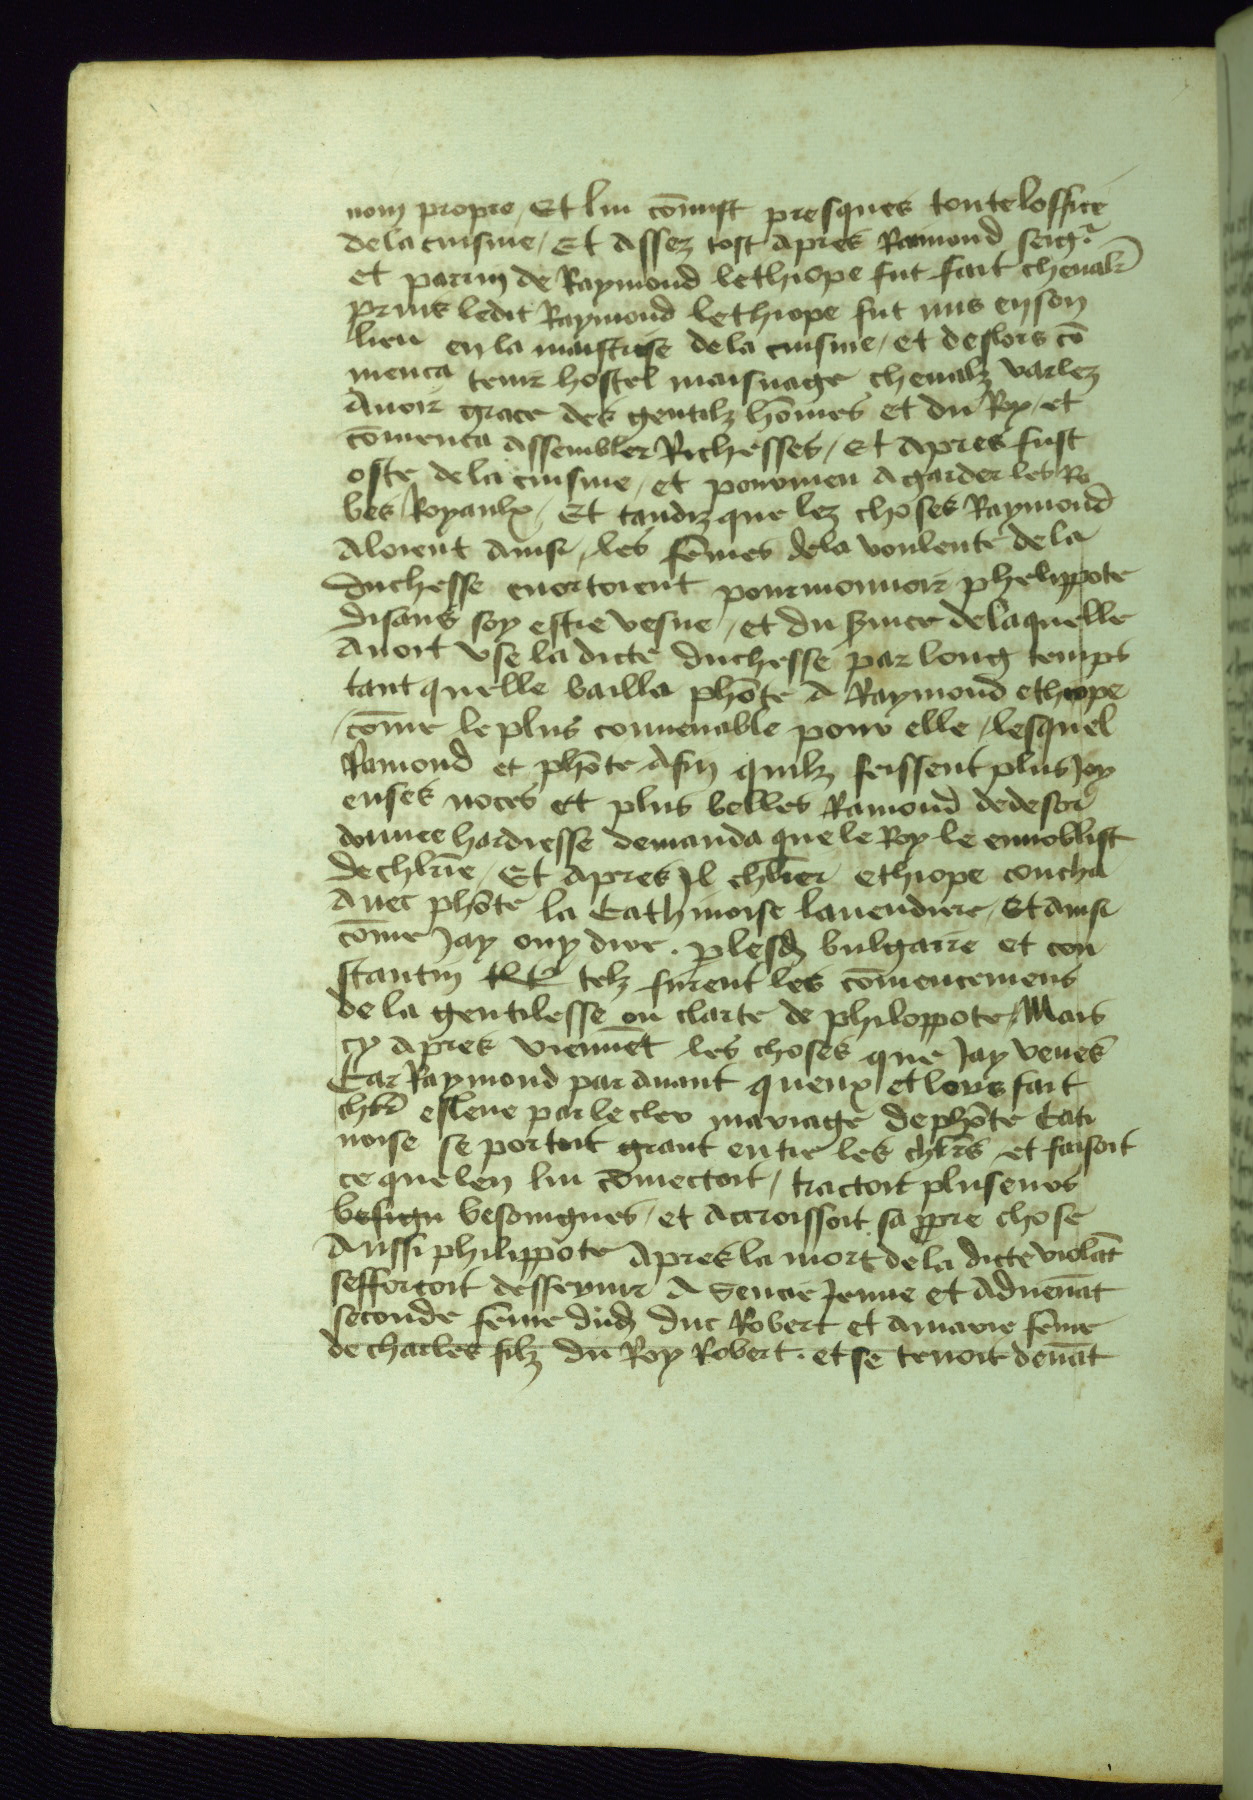 nom propre / Et lui cōmist presques toute loffice
de la cuisine / Et assez tost apres Raimond seigr
et parrin de Raymond lethiope fut fait chevalr̄
puis ledit Raymond lethiope fut mis en son
lieu en la maistrise de la cuisine / et deslors cō
menca tenir hostel maisnage chevalz varlez
Avoir grace des gentilz hōmes et du Roy / et
cōmenca assembler Richesses / Et apres fust
oste de la cuisine / et pourveu a garder les Ro
bes Royaulx / Et tandiz que lez choses Raymond
aloient ainsi / les fēmes de la voulente de la
duchesse enortoient pourmouvoir phelippote
disans soy estre vefve / et du service de laquelle
Avoit use la dicte duchesse par long temps
tant quelle bailla phōte a Raymond ethiope
cōme le plus convenable pour elle / lesquel
Ramond et phōte Afin quilz feissent plus Joy
euses noces et plus belles Ramond de desor
donnee hardiesse demanda que le Roy le ennoblist
de chlr̄ie / Et apres Jl chlr̄ier ethiope coucha
Avec phōte la Cathinoise lavendiere / Et ainsi
cōme Jay ouy dire . p lesd bulgarie et con
stantin telz furent les cōmencemens
de la gentilesse ou clarte de philoppote / Mais
cy apres viennēt les choses que Jay veues
Car Raymond par avant queux et lors fait
chlr̄ esleve par le cler mariage de phōte Cati
noise se portoit grant entre les chlr̄s / et faisoit
ce que len lui cōmectoit / tractoit plusieurs
besign besoingnes / et accroissoit sa ppre chose
Aussi philippote apres la mort de la dicte violāt
sefforcoit desservir a Sencie Jeune et advenāt
seconde fēme dud duc Robert et a marie fēme
de charles filz du Roy Robert . et se tenoit devāt